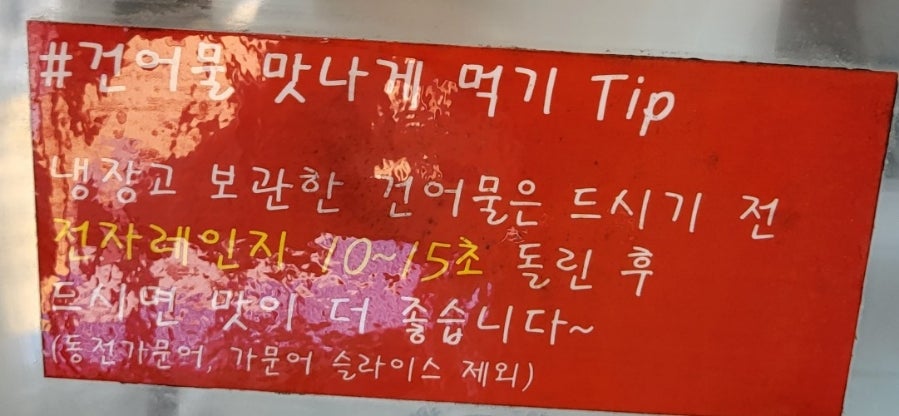 #건어물 맛나게 먹기 Tip
냉장고 보관한 건어물은 드시기 전
전자레인지 10~15초 돌린 후
드시면 맛이 더 좋습니다~
(동전가문어, 가문어 슬라이스 제외)